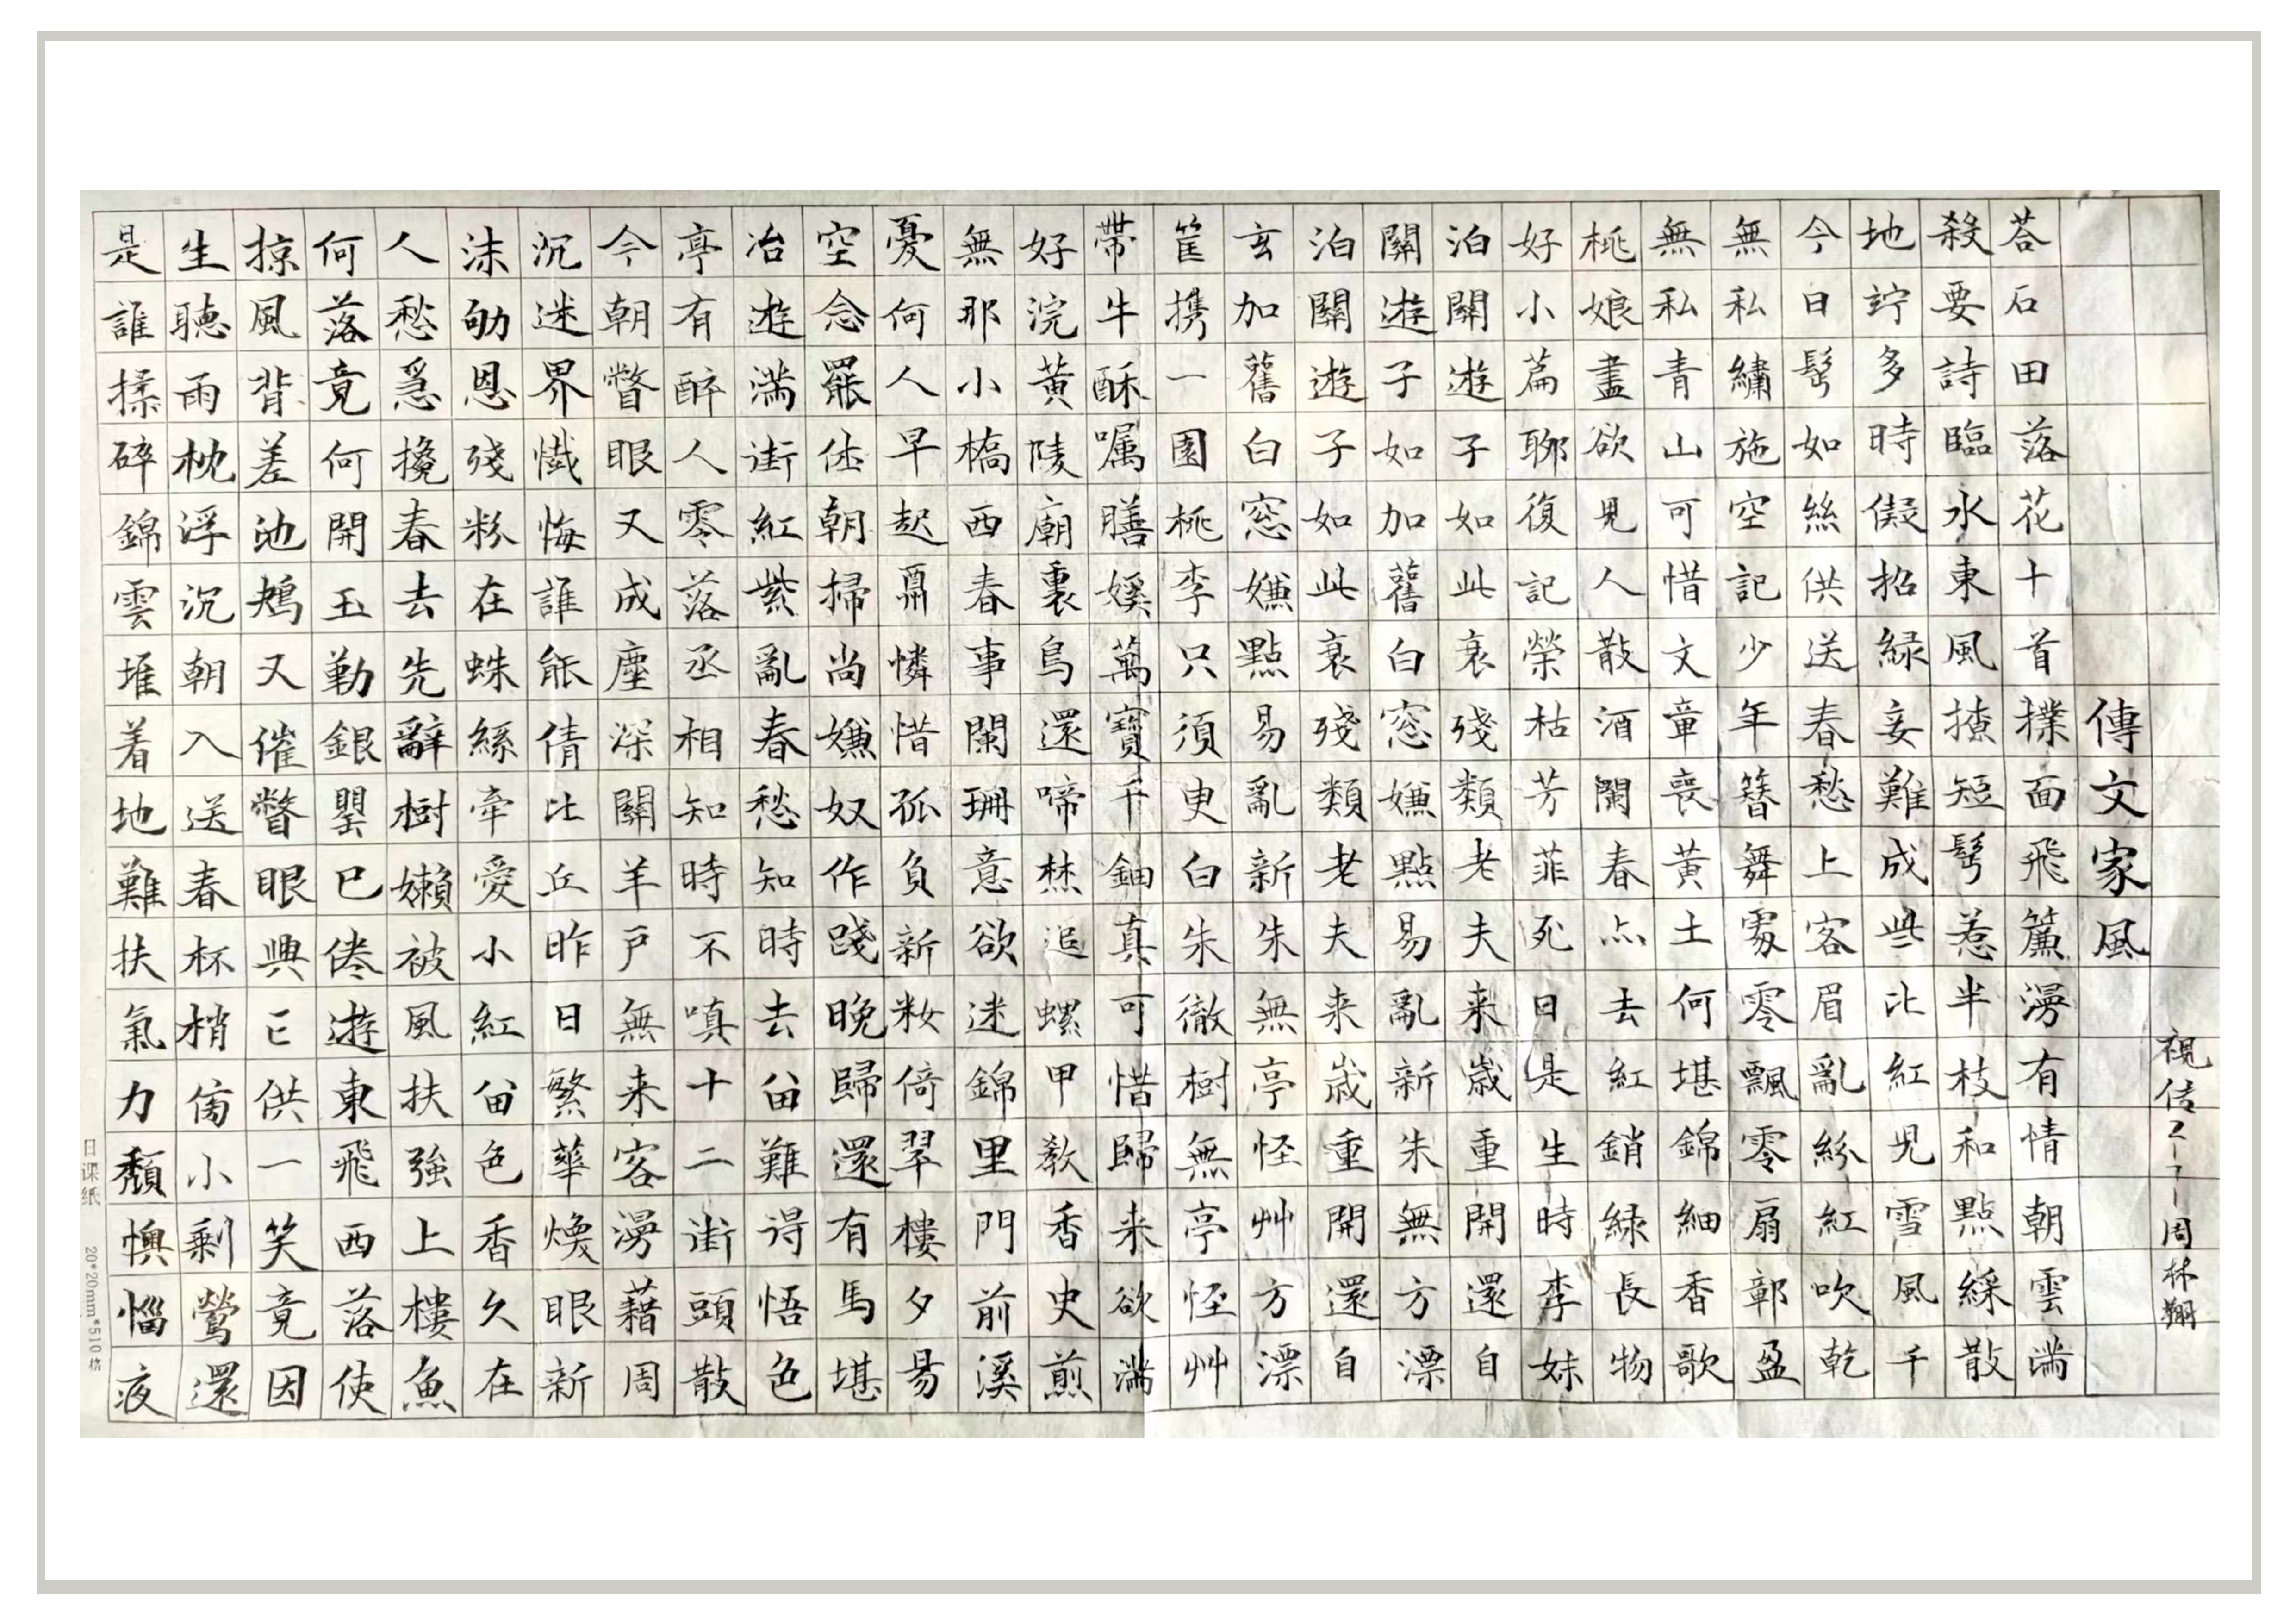 視传2-7-周林翔
傳文家風
荅石田落花十首撲面飛簾漫有情朝雲滿
殺要詩臨水東風撩短鬢惹半枝和點綵散
地竚多時儗招緑妾難成些比紅児雪風千
今日鬢如絲供送春愁上客眉亂紛紅吹乾
無私繡施空記少年簪舞處零飄零扇鄣盈
無私青山可惜文章喪黃土何堪錦細香歌
桃娘盡欲見人散酒闌春点去紅銷緑長物
好小篇聊復記榮枯芳菲死日是生時李妹
泊關遊子如此衰殘類老夫来歳重開還自
關遊子如加舊白窓嫌點易亂新朱無方漂
泊關遊子如此衰殘類老夫来歳重開還自
玄加舊白窓嫌點易亂新朱無亭怪艸方漂
筐携一園桃李只須更白朱徹樹無亭怪艸
帶牛酥嘱膳媄萬寶千鈿真可惜歸来欲滿
好浣黃陵廟裏鳥還啼棥追螺甲教香史煎
無那小橋西春事闌珊意欲迷錦里門前溪
憂何人早起憐惜孤負新妝倚翠樓夕昜
空念罷休朝掃尚嫌奴作踐晚歸還有馬堪
冶遊滿街紅紫亂春愁知時去畄難得悟色
亭有醉人零落丞相知時不嗔十二街頭散
今朝瞥眼又成塵深關羊戶無来客漫藉周
沉迷界懺悔誰能倩比丘昨日繁華煥眼新
沫劬恩殘粉在蛛絲牽愛小紅畄色香久在
人愁急攙春去先辭樹嬾被風扶強上樓魚
何落竟何開玉勒銀罌已倦遊東飛西落使
掠風背差池鳺又催瞥眼興亡供一笑竟因
生聽雨枕浮沉朝入送春杯梢傍小剩鶯還
是誰揉碎錦雲堆着地難扶氣力頹懊惱夜
日课纸 20*20mm*510格